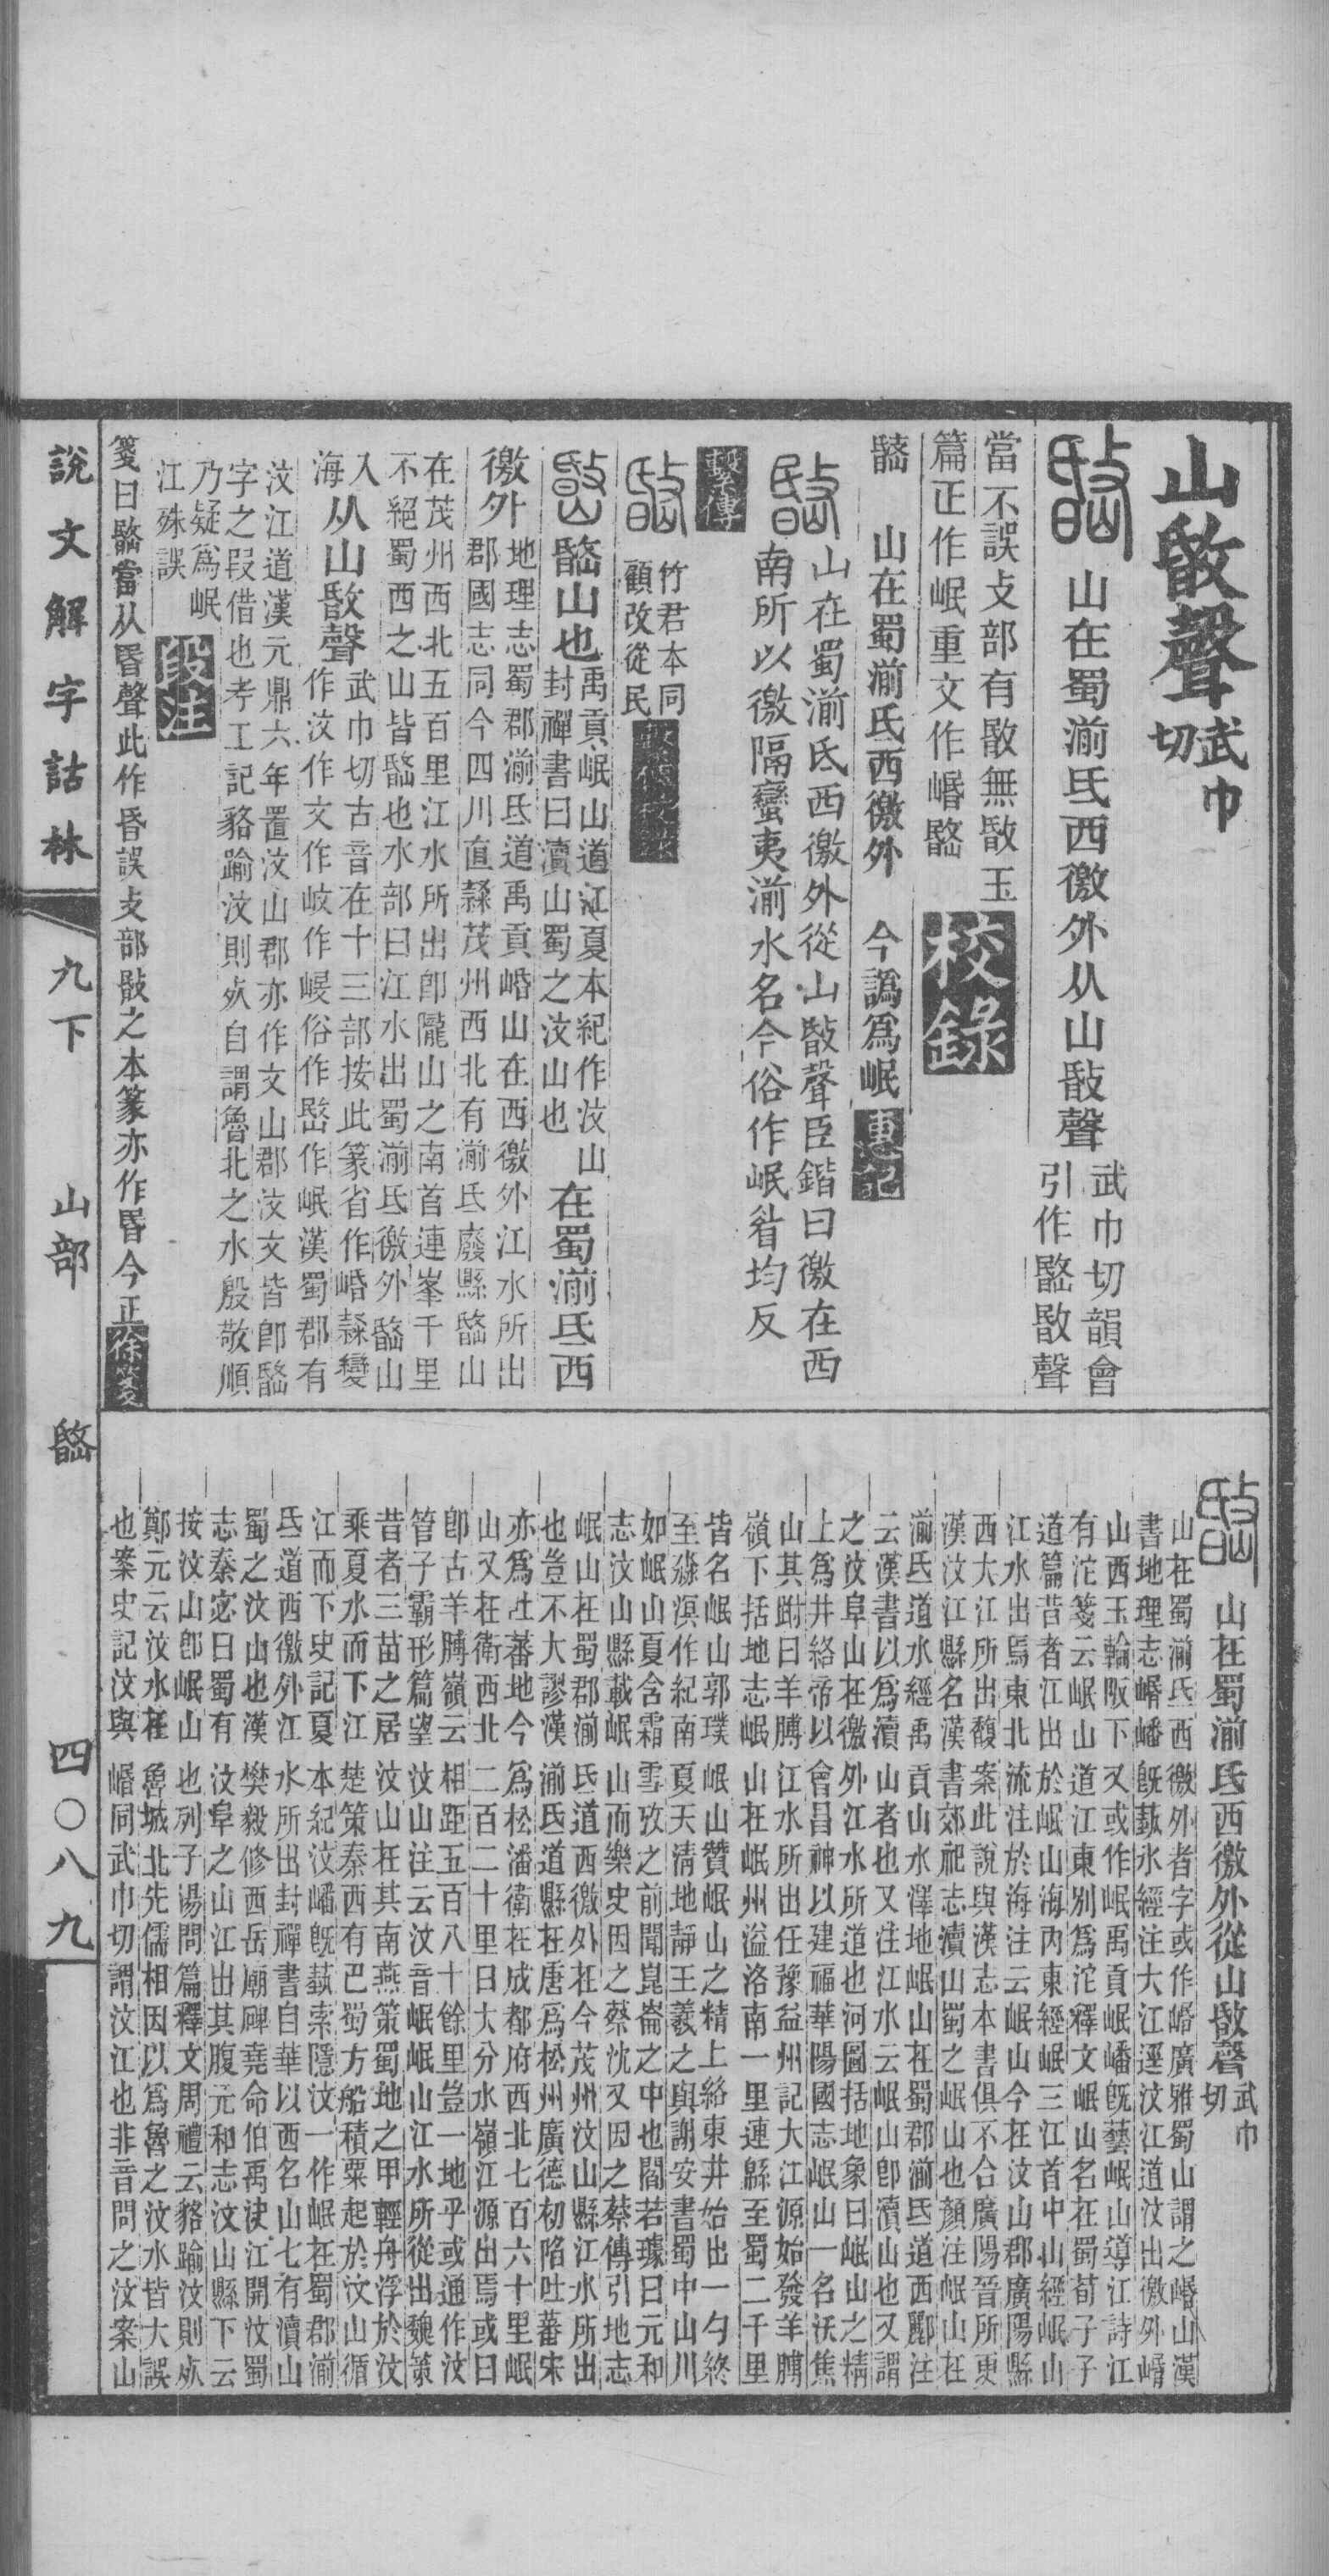 山敯聲武巾切
山在蜀湔氐西徼外从山敃聲武巾切韻會
引作敯聲
當不誤攴部有敯無敃玉
篇正作岷重文作崏
校錄
山在蜀湔氐西徼外 今譌爲岷惠記
山在蜀湔氐西徼外從山敃聲臣鍇曰徼在西
南所以徼隔蠻夷湔水名今俗作岷眉均反
繫傳
竹君本同
顧改從民
山也禹貢岷山道江夏本紀作汶山
封禪書曰瀆山蜀之汶山也在蜀湔氐西
徼外地理志蜀郡湔氐道禹貢崏山在西徼外江水所出
郡國志同今四川直隸茂州西北有湔氐廢縣山
在茂州西北五百里江水所出卽隴山之南首連峯千里
不絕蜀西之山皆也水部曰江水出蜀湔氐徼外山
入海从山敯聲武巾切古音在十三部按此篆省作崏隸變
作汶作文作岐作㟭俗作㟩作岷漢蜀郡有
汶江道漢元鼎六年置汶山郡亦作文山郡汶文皆卽
字之叚借也考工記貉踰汶則死自謂魯北之水殷敬順
乃疑爲岷
江殊誤
段注
箋曰當从昬聲此作昏誤攴部敯之本篆亦作昬今正徐箋
山在蜀湔氐西徼外從山敯聲武巾切
山在蜀湔氐西徼外者字或作崏廣雅蜀山謂之崏山漢
書地理志崏嶓旣蓺水經注大江逕汶江道汶出徼外崏
山西玉輪阪下又或作岷禹貢岷嶓旣藝岷山導江詩江
有沱箋云岷山道江東別爲沱釋文岷山名在蜀荀子子
道篇昔者江出於岷山海內東經岷三江首中山經岷山
江水出焉東北流注於海注云岷山今在汶山郡廣陽縣
西大江所出馥案此說與漢志本書俱不合廣陽晉所更
漢汶江縣名漢書郊祀志瀆山蜀之岷山也顏注岷山在
湔氐道水經禹貢山水澤地岷山在蜀郡湔氐道西酈注
云漢書以爲瀆山者也又注江水云岷山卽瀆山也又謂
之汶阜山在徼外江水所道也河圖括地象曰岷山之精
上爲井絡帝以會昌神以建福華陽國志岷山一名沃焦
山其跗曰羊膊江水所出任豫益州記大江源始發羊膊
嶺下括地志岷山在岷州溢洛南一里連緜至蜀二千里
皆名岷山郭璞岷山贊岷山之精上絡東井始出一勺終
至淼溟作紀南夏天清地靜王羲之與謝安書蜀中山川
如岷山夏含霜雪攷之前聞崑崙之中也閻若璩曰元和
志汶山縣載岷山而樂史因之蔡沈又因之蔡傳引地志
岷山在蜀郡湔氐道西徼外在今茂州汶山縣江水所出
也豈不大謬漢湔氐道縣在唐爲松州廣德初陷吐蕃宋
亦爲吐蕃地今爲松潘衛在成都府西北七百六十里岷
山又在衛西北二百二十里曰大分水嶺江源出焉或曰
卽古羊膊嶺云相距五百八十餘里豈一地乎或通作汶
管子霸形篇望汶山注云汶音岷岷山江水所從出魏策
昔者三苗之居汶山在其南燕策蜀地之甲輕舟浮於汶
乘夏水而下江楚策秦西有巴蜀方船積粟起於汶山循
江而下史記夏本紀汶嶓旣蓺索隱汶一作岷在蜀郡湔
氐道西徼外江水所出封禪書自華以西名山七有瀆山
蜀之汶山也漢樊毅修西岳廟碑堯命伯禹決江開汶蜀
志秦宓曰蜀有汶阜之山江出其腹元和志汶山縣下云
按汶山卽岷山也列子湯問篇釋文周禮云貉踰汶則死
鄭元云汶水在魯城北先儒相因以爲魯之汶水皆大誤
也案史記汶與崏同武巾切謂汶江也非音問之汶案山
說文解字詁林 九下 山部 四〇八九